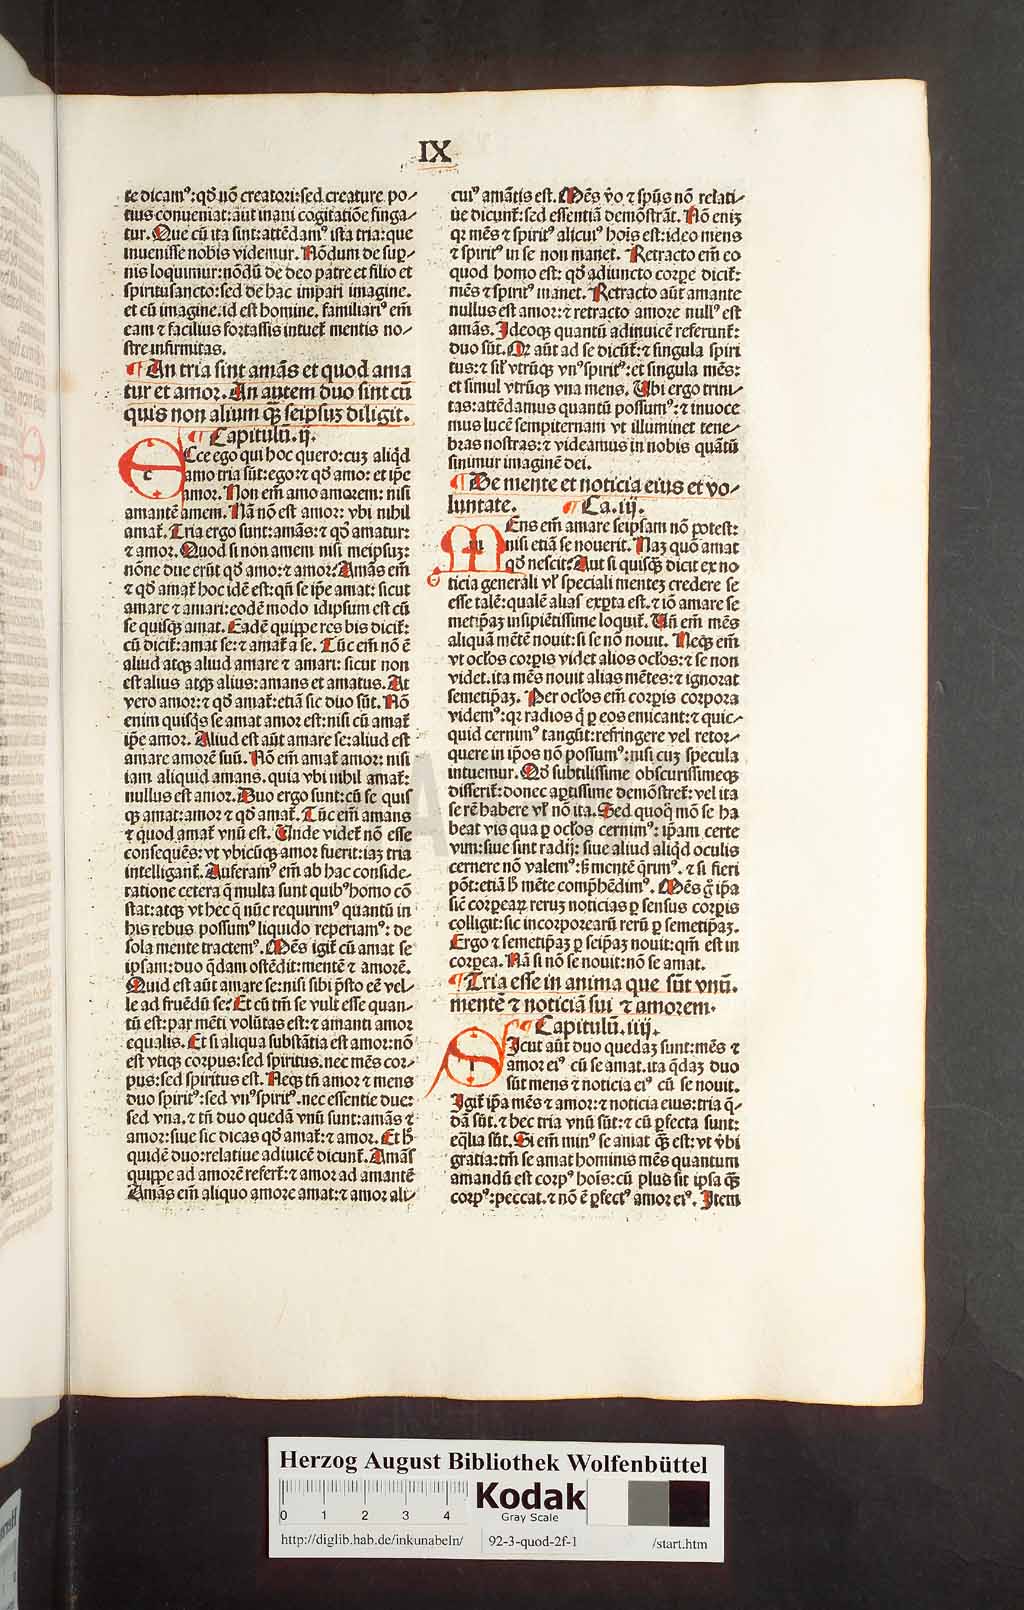 IX
te dicamꝰ: qď nō creatori: sed creature po⸗
tius conueniat: aut inani cogitatiōe finga⸗
tur. Que cū ita sint: attēdamꝰ ista tria: que
inuenisse nobis videmur. Nōdum de sup⸗
nis loquimur: nōdū de deo patre et filio et
spiritusancto: sed de hac impari imagine.
et cū imagine. id est homine. familiariꝰ em̄
eam ⁊ facilius fortassis intuet᷑ mentis no⸗
stre infirmitas.
¶ An tria sint amās et quod ama
tur et amor. An autem duo sint cū
quis non alium qꝫ̄ seipsuꝫ diligit.
¶ Capitulū. ij.
Ecce ego qui hoc quero: cuꝫ aliqd̓
amo tria sūt: ego: ⁊ qď amo: et ip̄e
amor. Non em̄ amo amorem: nisi
amantē amem. Nā nō est amor: vbi nihil
amat᷑. Tria ergo sunt: amās: ⁊ qď amatur:
⁊ amor. Quod si non amem nisi meipsuꝫ:
nōne due erūt qď amo: ⁊ amor: Amās em̄
⁊ qď amat᷑ hoc idē est: qn̄ se ip̄e amat: sicut
amare ⁊ amari: eodē modo idipsum est cū
se quisqꝫ amat. Eadē quippe res bis dicit᷑:
cū dicit᷑: amat se: ⁊ amat᷑ a se. Tūc em̄ nō ē
aliud atqꝫ aliud amare ⁊ amari: sicut non
est alius atqꝫ alius: amans et amatus. At
vero amor: ⁊ qď amat᷑: etiā sic duo sūt. Nō
enim quisqs se amat amor est: nisi cū amat᷑
ip̄e amor. Aliud est aūt amare se: aliud est
amare amorē suū. Nō em̄ amat᷑ amor: nisi
iam aliquid amans. quia vbi nihil amat᷑:
nullus est amor. Duo ergo sunt: cū se quis
qꝫ amat: amor ⁊ qď amat᷑. Tūc em̄ amans
⁊ quod amat᷑ vnū est. Unde videt᷑ nō esse
consequēs: vt vbicūqꝫ amor fuerit: iaꝫ tria
intelligant᷑. Auferamꝰ em̄ ab hac conside⸗
ratione cetera q̄ multa sunt quibꝰ homo cō
stat: atqꝫ vt hec q̄ nūc requirimꝰ quantū in
his rebus possumꝰ liquido reperiamꝰ: de
sola mente tractemꝰ. Mēs igit᷑ cū amat se
ipsam: duo q̄dam ostēdit: mentē ⁊ amorē.
Quid est aūt amare se: nisi sibi p̄sto eē vel⸗
le ad fruēdū se: Et cū tm̄ se vult esse quan⸗
tū est: par mēti volūtas est: ⁊ amanti amor
equalis. Et si aliqua substātia est amor: nō
est vtiqꝫ corpus: sed spiritus. nec mēs cor⸗
pus: sed spiritus est. Neqꝫ tn̄ amor ⁊ mens
duo spiritꝰ: sed vnꝰ spiritꝰ. nec essentie due:
sed vna. ⁊ tn̄ duo quedā vnū sunt: amās ⁊
amor: siue sic dicas qď amat᷑: ⁊ amor. Et h̄
quidē duo: relatiue adiuicē dicunt᷑. Amās
quippe ad amorē refert᷑: ⁊ amor ad amantē
Amās em̄ aliquo amore amat: ⁊ amor ali⸗
cuiꝰ amātis est. Mēs v̄o ⁊ sp̄us nō relati⸗
ue dicunt᷑: sed essentiā demōstrāt. Nō eniꝫ
qꝛ mēs ⁊ spiritꝰ alicuiꝰ hoīs est: ideo mens
⁊ spiritꝰ in se non manet. Retracto em̄ eo
quod homo est: qď adiuncto corpe dicit᷑:
mēs ⁊ spiritꝰ manet. Retracto aūt amante
nullus est amor: ⁊ retracto amore nullꝰ est
amās. Ideoqꝫ quantū adinuicē referunt᷑:
duo sūt. Qꝛ aūt ad se dicūt᷑: ⁊ singula spiri
tus: ⁊ sil̄ vtrūqꝫ vnꝰ spiritꝰ: et singula mēs:
et simul vtrūqꝫ vna mens. Ubi ergo trini⸗
tas: attēdamus quantū possumꝰ: ⁊ inuoce
mus lucē sempiternam vt illuminet tene⸗
bras nostras: ⁊ videamus in nobis quātū
sinimur imaginē dei.
¶ De mente et noticia eius et vo⸗
luntate. ¶ Ca. iij.
Mens em̄ amare seipsam nō potest:
nisi etiā se nouerit. Naꝫ quō amat
qď nescit: Aut si quisqꝫ dicit ex no
ticia generali vl̓ speciali menteꝫ credere se
esse talē: qualē alias exꝑta est. ⁊ iō amare se
metip̄aꝫ insipiētissime loquit᷑. Uñ em̄ mēs
aliquā mētē nouit: si se nō nouit. Neqꝫ em̄
vt oclos corꝑis videt alios oclos: ⁊ se non
videt. ita mēs nouit alias mētes: ⁊ ignorat
semetip̄aꝫ. Per oclos em̄ corꝑis corpora
videmꝰ: qꝛ radios q̄ ꝑ eos emicant: ⁊ quic⸗
quid cernimꝰ tangūt: refringere vel retor⸗
quere in ip̄os nō possumꝰ: nisi cuꝫ specula
intuemur. Qď subtilissime obscurissimeqꝫ
disserit᷑: donec aꝑtissime demōstret᷑: vel ita
se rē habere vl̓ nō ita. Sed quoqꝫ mō se ha
beat vis qua ꝑ oclos cernimꝰ: ip̄am certe
vim: siue sint radij: siue aliud aliqd̓ oculis
cernere nō valemꝰ: s̄ mentē q̄rimꝰ. ⁊ si fieri
pōt: etiā h̄ mēte comp̄hēdimꝰ. Mēs g̊ ip̄a
sic̄ corpearꝝ reruꝫ noticias ꝑ sensus corꝑis
colligit: sic incorporearū rerū ꝑ semetip̄aꝫ.
Ergo ⁊ semetip̄aꝫ ꝑ seip̄aꝫ nouit: qm̄ est in
corpea. Nā si nō se nouit: nō se amat.
¶ Tria esse in anima que sūt vnū.
mentē ⁊ noticiā sui ⁊ amorem.
¶ Capitulū. iiij.
Sicut aūt duo quedaꝫ sunt: mēs ⁊
amor eiꝰ cū se amat. ita q̄daꝫ duo
sūt mens ⁊ noticia eiꝰ cū se nouit.
Igit᷑ ip̄a mēs ⁊ amor: ⁊ noticia eius: tria q̄⸗
dā sūt. ⁊ hec tria vnū sūt: ⁊ cū ꝑfecta sunt:
eq̄lia sūt. Si em̄ minꝰ se amat qꝫ̄ est: vt v̄bi
gratia: tm̄ se amat hominis mēs quantum
amandū est corpꝰ hoīs: cū plus sit ipsa qꝫ̄
corpꝰ: peccat. ⁊ nō ē ꝑfectꝰ amor eiꝰ. Item
Herzog August Bibliothek Wolfenbüttel
0 1 2 3 4
Kodak
Gray Scale
http://diglib.hab.de/inkunabeln/ 92-3-quod-2f-1 /start.htm